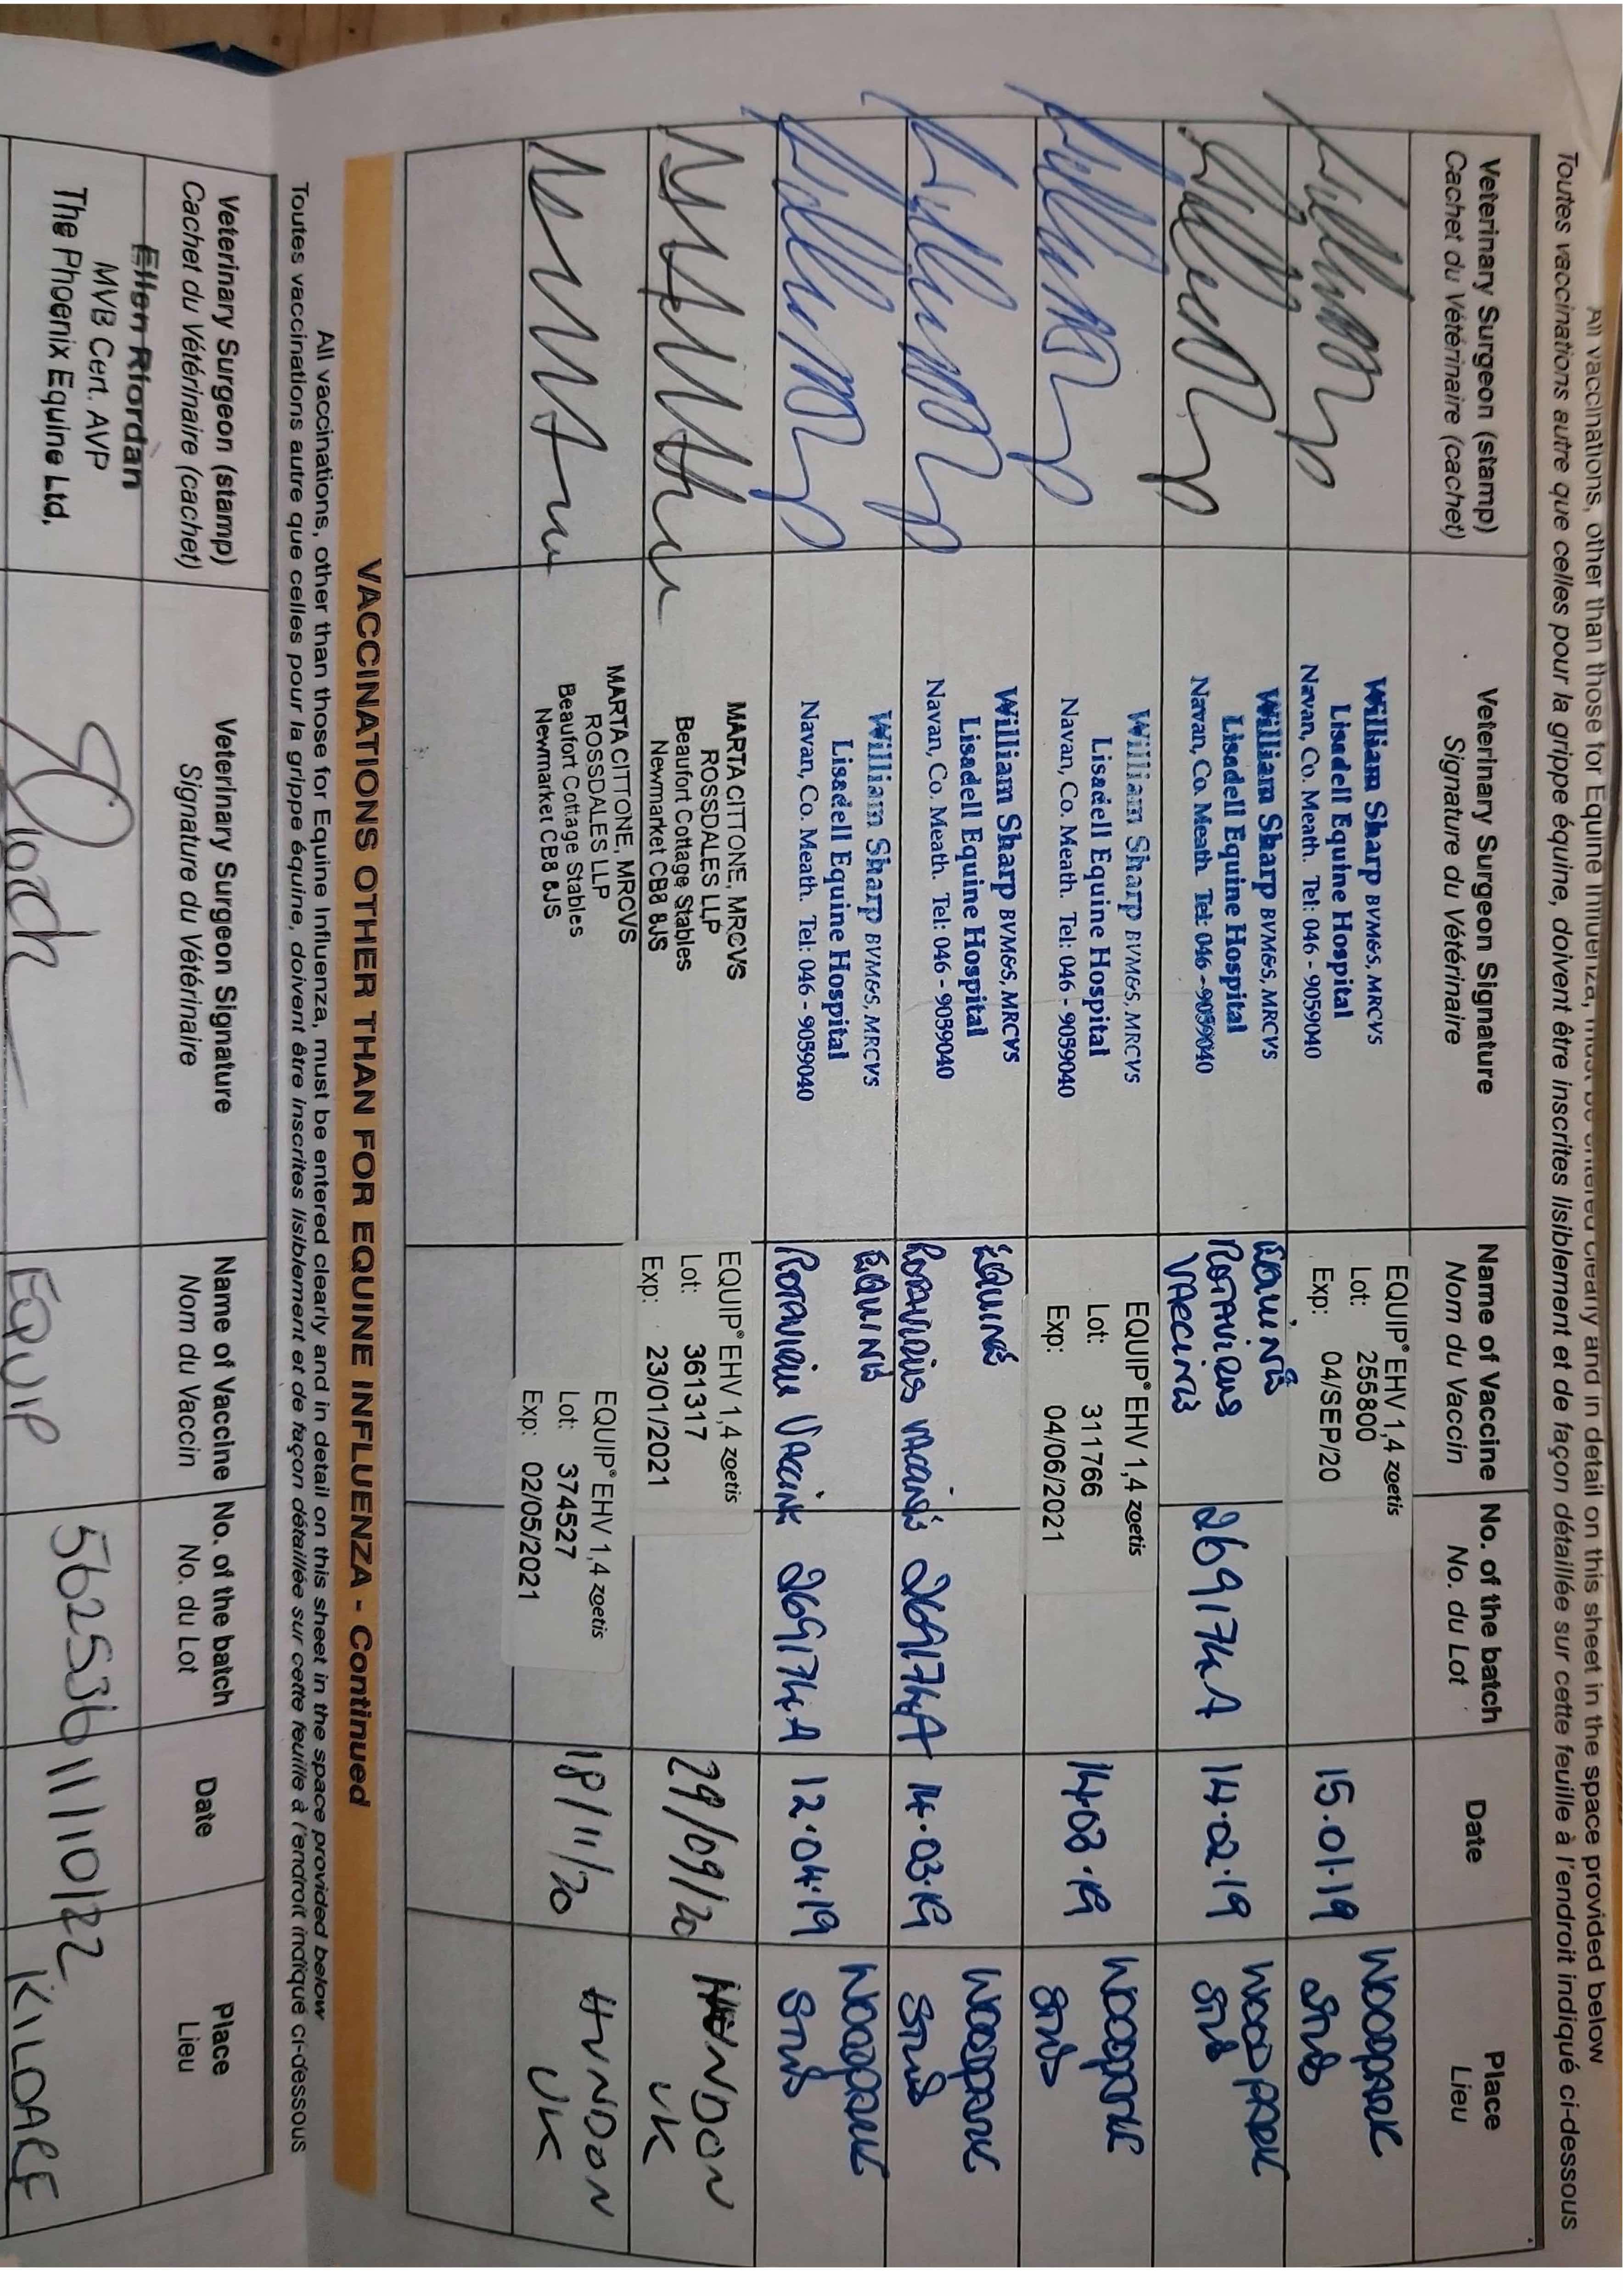 All vaccinations, other than those for Equine Influenza, must be entered clearly and in detail on this sheet in the space provided below
Toutes vaccinations autre que celles pour la grippe équine, doivent être inscrites lisiblement et de façon détaillée sur cette feuille à l'endroit indiqué ci-dessous
Veterinary Surgeon (stamp)
Cachet du Vétérinaire (cachet)
Veterinary Surgeon Signature
Signature du Vétérinaire
Name of Vaccine
Nom du Vaccin
No. of the batch
No. du Lot
Date
Place
Lieu
William Sharp BVM&S, MRCVS
Lisadell Equine Hospital
Navan, Co. Meath. Tel: 046 - 9059040
EQUIP® EHV 1,4 zoetis
Lot: 255800
Exp: 04/SEP/20
15.01.19
WOODPARK
STUD
William Sharp BVM&S, MRCVS
Lisadell Equine Hospital
Navan, Co. Meath. Tel: 046 - 9059040
EQUINE
ROTAVIRUS
VACCINE
269174A
14.02.19
WOODPARK
STUD
William Sharp BVM&S, MRCVS
Lisadell Equine Hospital
Navan, Co. Meath. Tel: 046 - 9059040
EQUIP® EHV 1,4 zoetis
Lot: 311766
Exp: 04/06/2021
14.03.19
WOODPARK
STUD
William Sharp BVM&S, MRCVS
Lisadell Equine Hospital
Navan, Co. Meath. Tel: 046 - 9059040
EQUINE
ROTAVIRUS VACCINE
269174A
14.03.19
WOODPARK
STUD
William Sharp BVM&S, MRCVS
Lisadell Equine Hospital
Navan, Co. Meath. Tel: 046 - 9059040
EQUINE
ROTAVIRUS VACCINE
269174A
12.04.19
WOODPARK
STUD
MARTA CITTONE, MRCVS
ROSSDALES LLP
Beaufort Cottage Stables
Newmarket CB8 8JS
EQUIP® EHV 1,4 zoetis
Lot: 361317
Exp: 23/01/2021
29/09/20
HUNDON
UK
MARTA CITTONE, MRCVS
ROSSDALES LLP
Beaufort Cottage Stables
Newmarket CB8 8JS
EQUIP® EHV 1,4 zoetis
Lot: 374527
Exp: 02/05/2021
18/11/20
HUNDON
UK
VACCINATIONS OTHER THAN FOR EQUINE INFLUENZA - Continued
All vaccinations, other than those for Equine Influenza, must be entered clearly and in detail on this sheet in the space provided below
Toutes vaccinations autre que celles pour la grippe équine, doivent être inscrites lisiblement et de façon détaillée sur cette feuille à l'endroit indiqué ci-dessous
Veterinary Surgeon (stamp)
Cachet du Vétérinaire (cachet)
Veterinary Surgeon Signature
Signature du Vétérinaire
Name of Vaccine
Nom du Vaccin
No. of the batch
No. du Lot
Date
Place
Lieu
Ellen Riordan
MVB Cert. AVP
The Phoenix Equine Ltd.
EQUIP
562536
11/10/22
KILDARE